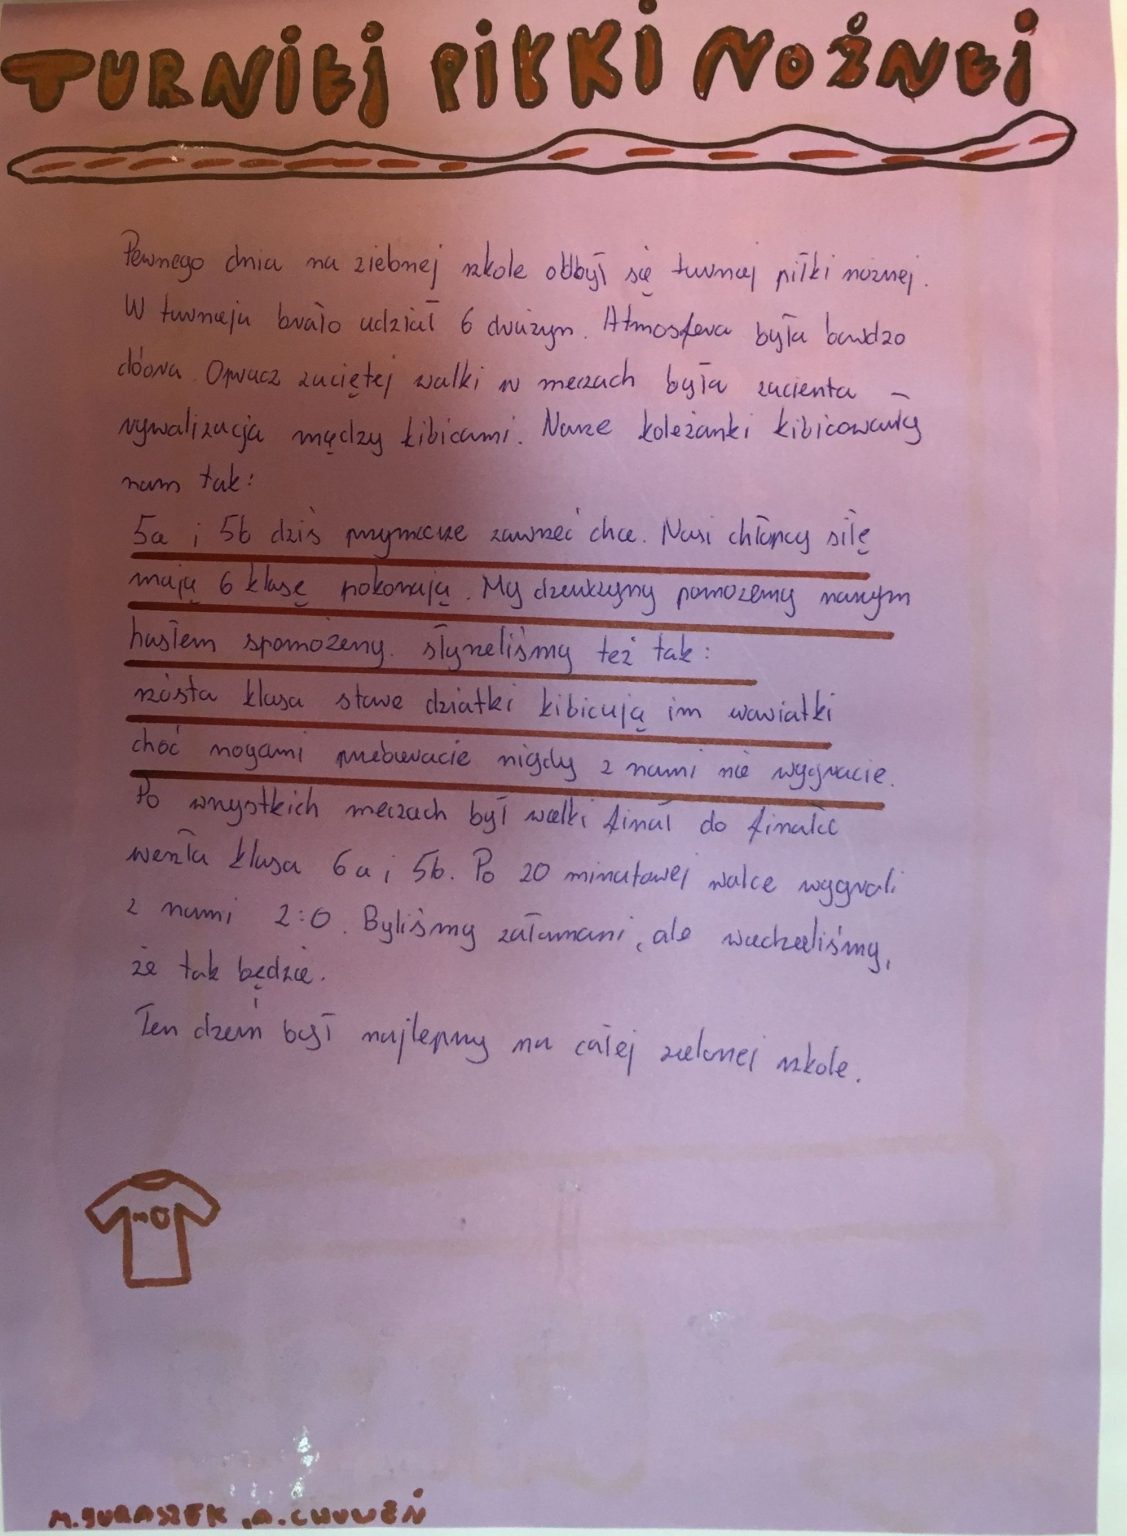 TURNIEJ PIŁKI NOŻNEJ
Pewnego dnia na ziebnej szkole odbył się turniej piłki nożnej.
W turnieju brało udział 6 drużyn. Atmosfera była bardzo
dobra. Oprucz zaciętej walki w meczach była zacienta
rywalizacja mędzy kibicami. Nasze koleżanki kibicowały
nam tak:
5a i 5b dziś przymeże zawrzeć chce. Nasi chłopcy siłę
mają 6 klasę pokonają. My dziewczyny pomożemy naszym
hasłem spomożemy. słyszeliśmy też tak:
szósta klasa stare dziatki kibicują im wariatki
choć nogami przebieracie nigdy z nami nie wygracie.
Po wszystkich meczach był wielki finał do finału
weszła klasa 6a i 5b. Po 20 minutowej walce wygrali
z nami 2:0. Byliśmy załamani, ale wiedzieliśmy,
że tak będzie.
Ten dzień był najlepszy na całej zielonej szkole.
M. JURASZEK, A. CHUWEŃ